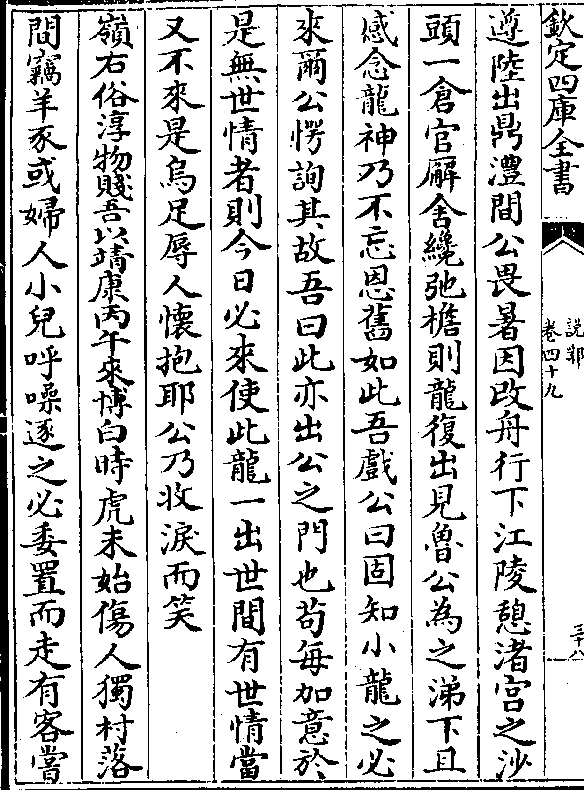 欽定四庫全書
說郛
卷四十九
三十八
遵陸出鼎澧間公畏暑因改舟行下江陵憩渚宮之沙
頭一倉官廨舍纔弛檐則龍復出見魯公為之涕下且
感念龍神乃不忘恩舊如此吾戲公曰固知小龍之必
來爾公愕詢其故吾曰此亦出公之門也茍每加意於
是無世情者則今日必來使此龍一出世間有世情當
又不來是烏足辱人懷抱耶公乃收淚而笑
嶺右俗淳物賤吾以靖康丙午來博白時虎未始傷人獨村落
間竊羊豕或婦人小兒呼噪逐之必委置而走有客嘗